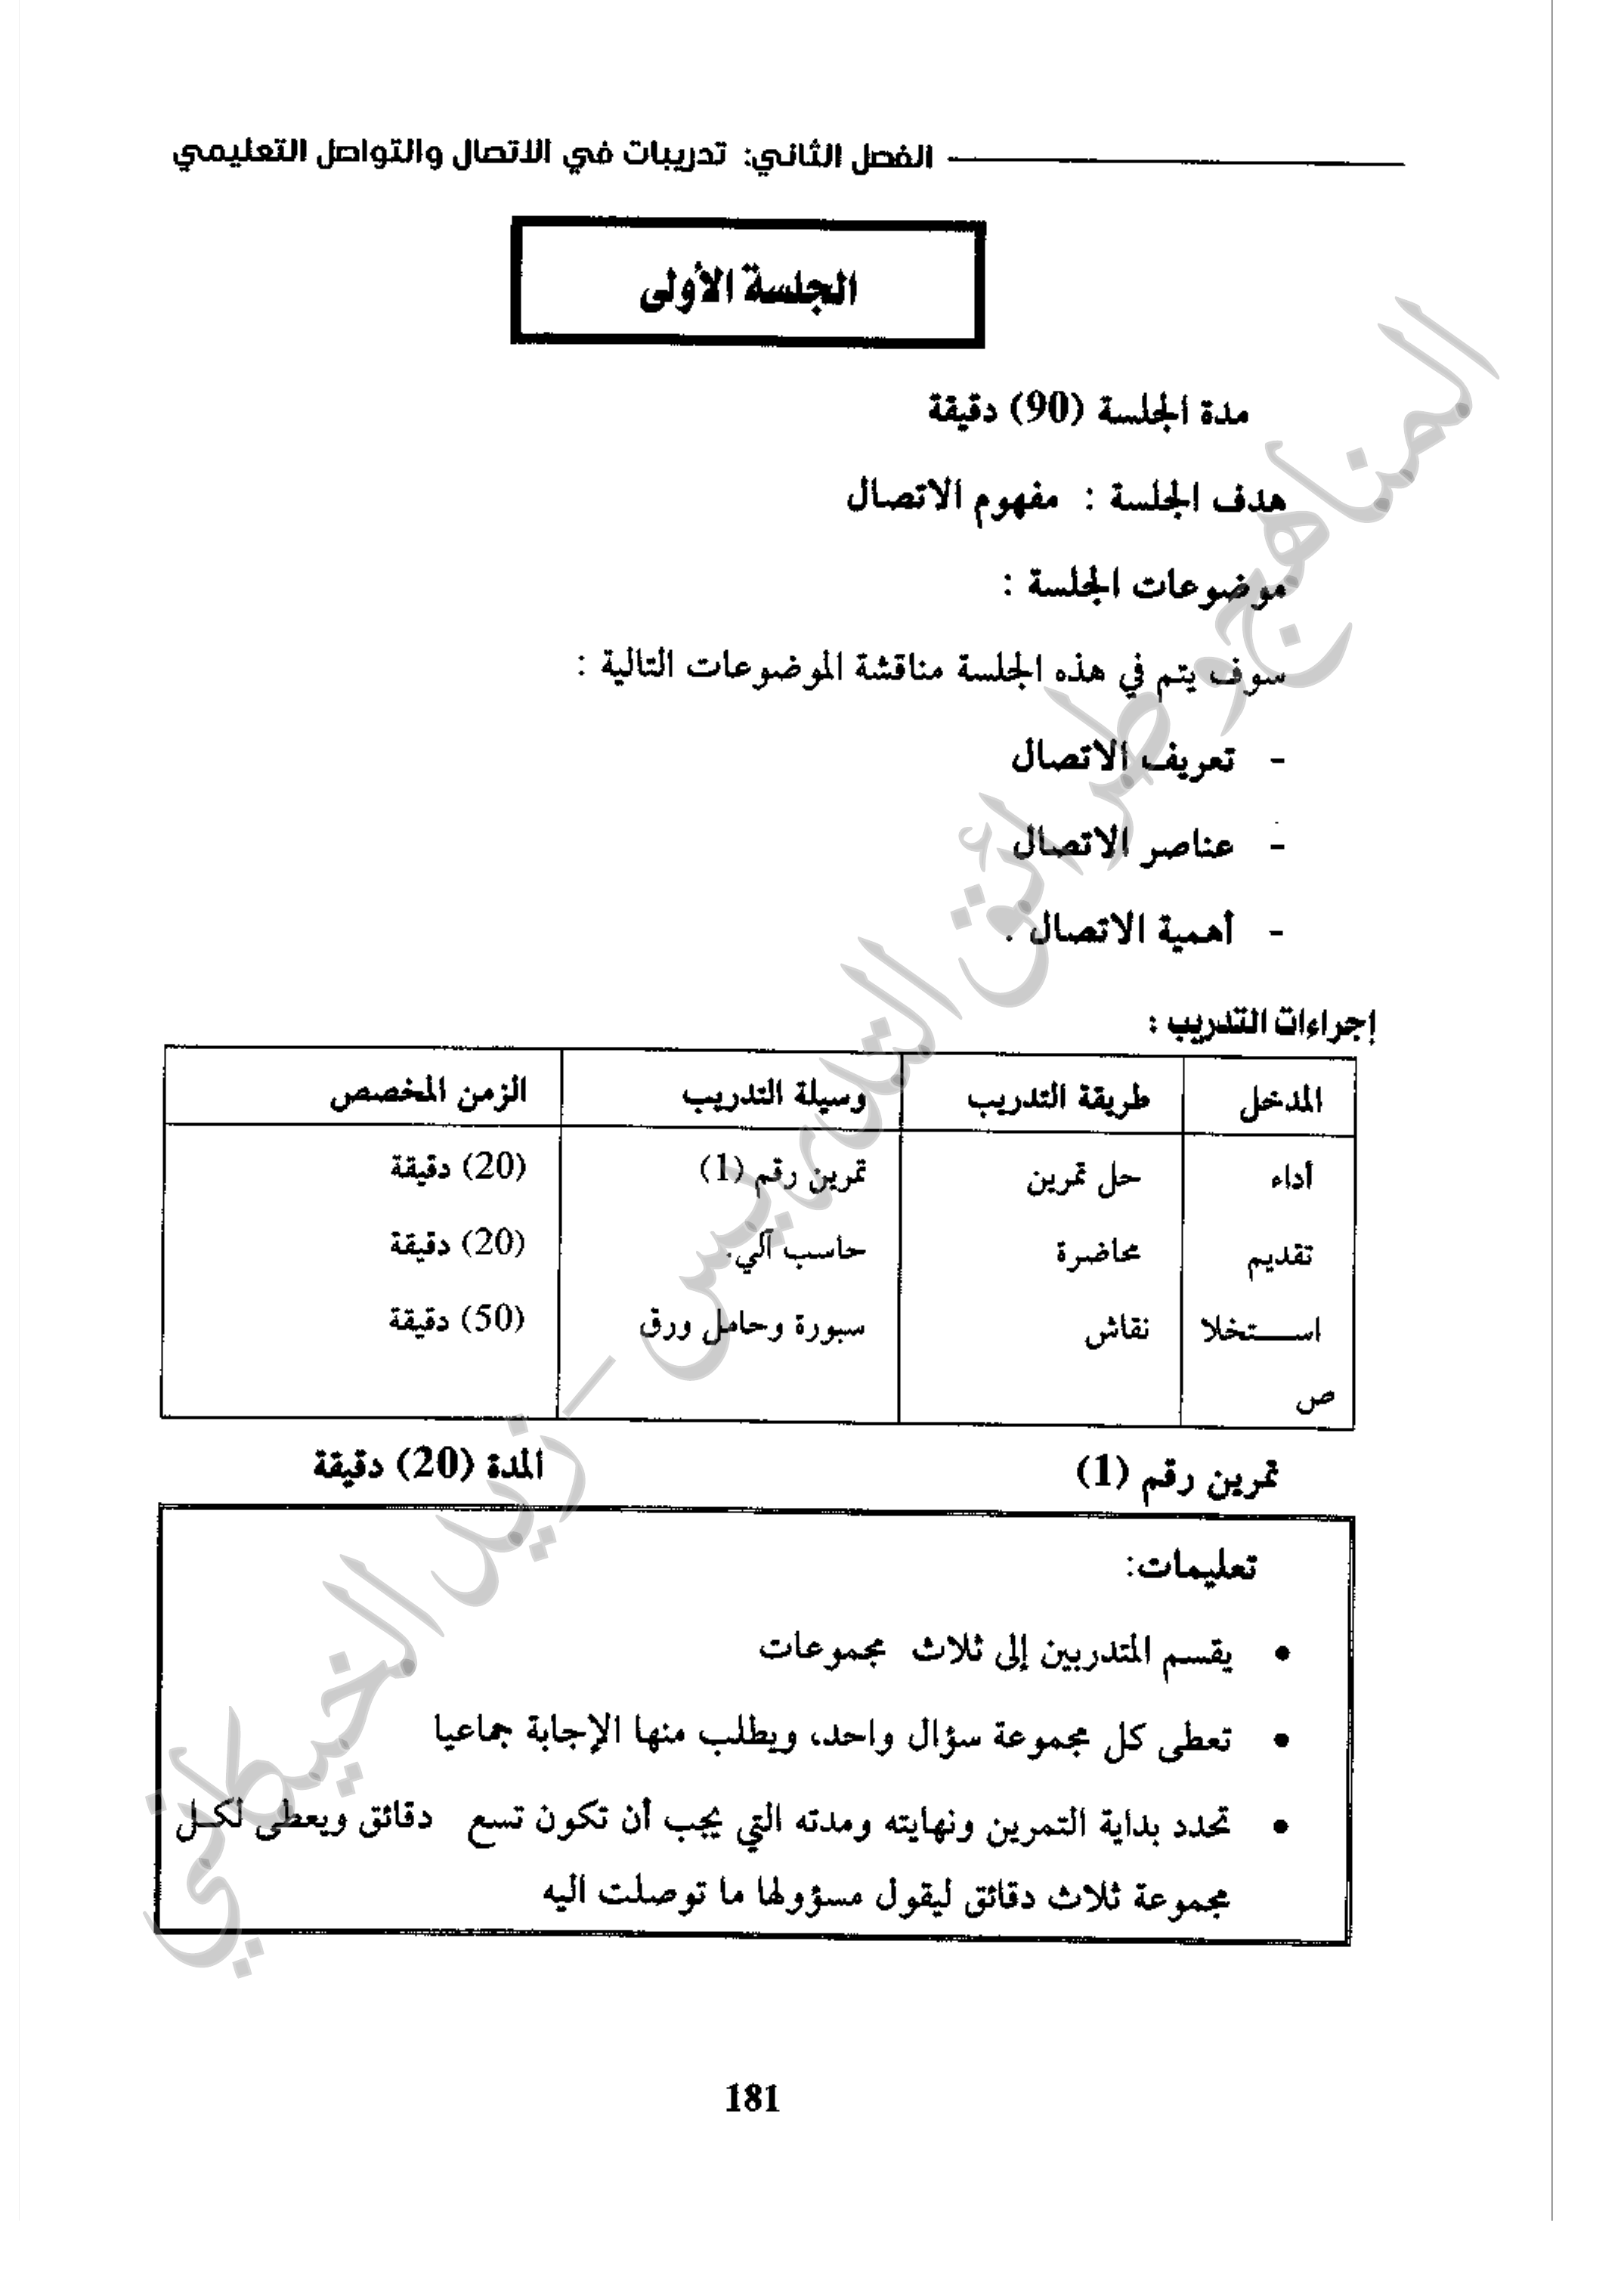 الفصل الثاني: تدريبات في الاتصال والتواصل التعليمي
الجلسة الأولى
مدة الجلسة (90) دقيقة
هدف الجلسة : مفهوم الاتصال
موضوعات الجلسة :
سوف يتم في هذه الجلسة مناقشة الموضوعات التالية :
- تعريف الاتصال
- عناصر الاتصال
- أهمية الاتصال .
إجراءات التدريب :
المدخل طريقة التدريب وسيلة التدريب الزمن المخصص
أداء حل تمرين تمرين رقم (1) (20) دقيقة
تقديم محاضرة حاسب آلي. (20) دقيقة
اســـتخلا نقاش سبورة وحامل ورق (50) دقيقة
ص
تمرين رقم (1) المدة (20) دقيقة
تعليمات:
• يقسم المتدربين إلى ثلاث مجموعات
• تعطى كل مجموعة سؤال واحد، ويطلب منها الإجابة جماعيا
• تحدد بداية التمرين ونهايته ومدته التي يجب أن تكون تسع دقائق ويعطى لكـل
مجموعة ثلاث دقائق ليقول مسؤولها ما توصلت اليه
181
المناهج وطرائق التدريس – زيد الخيكاني